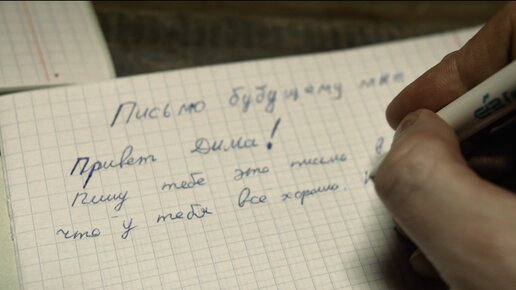 Письмо будущему мне
Привет Дима!
Пишу тебе это письмо
что у тебя всё хорошо.